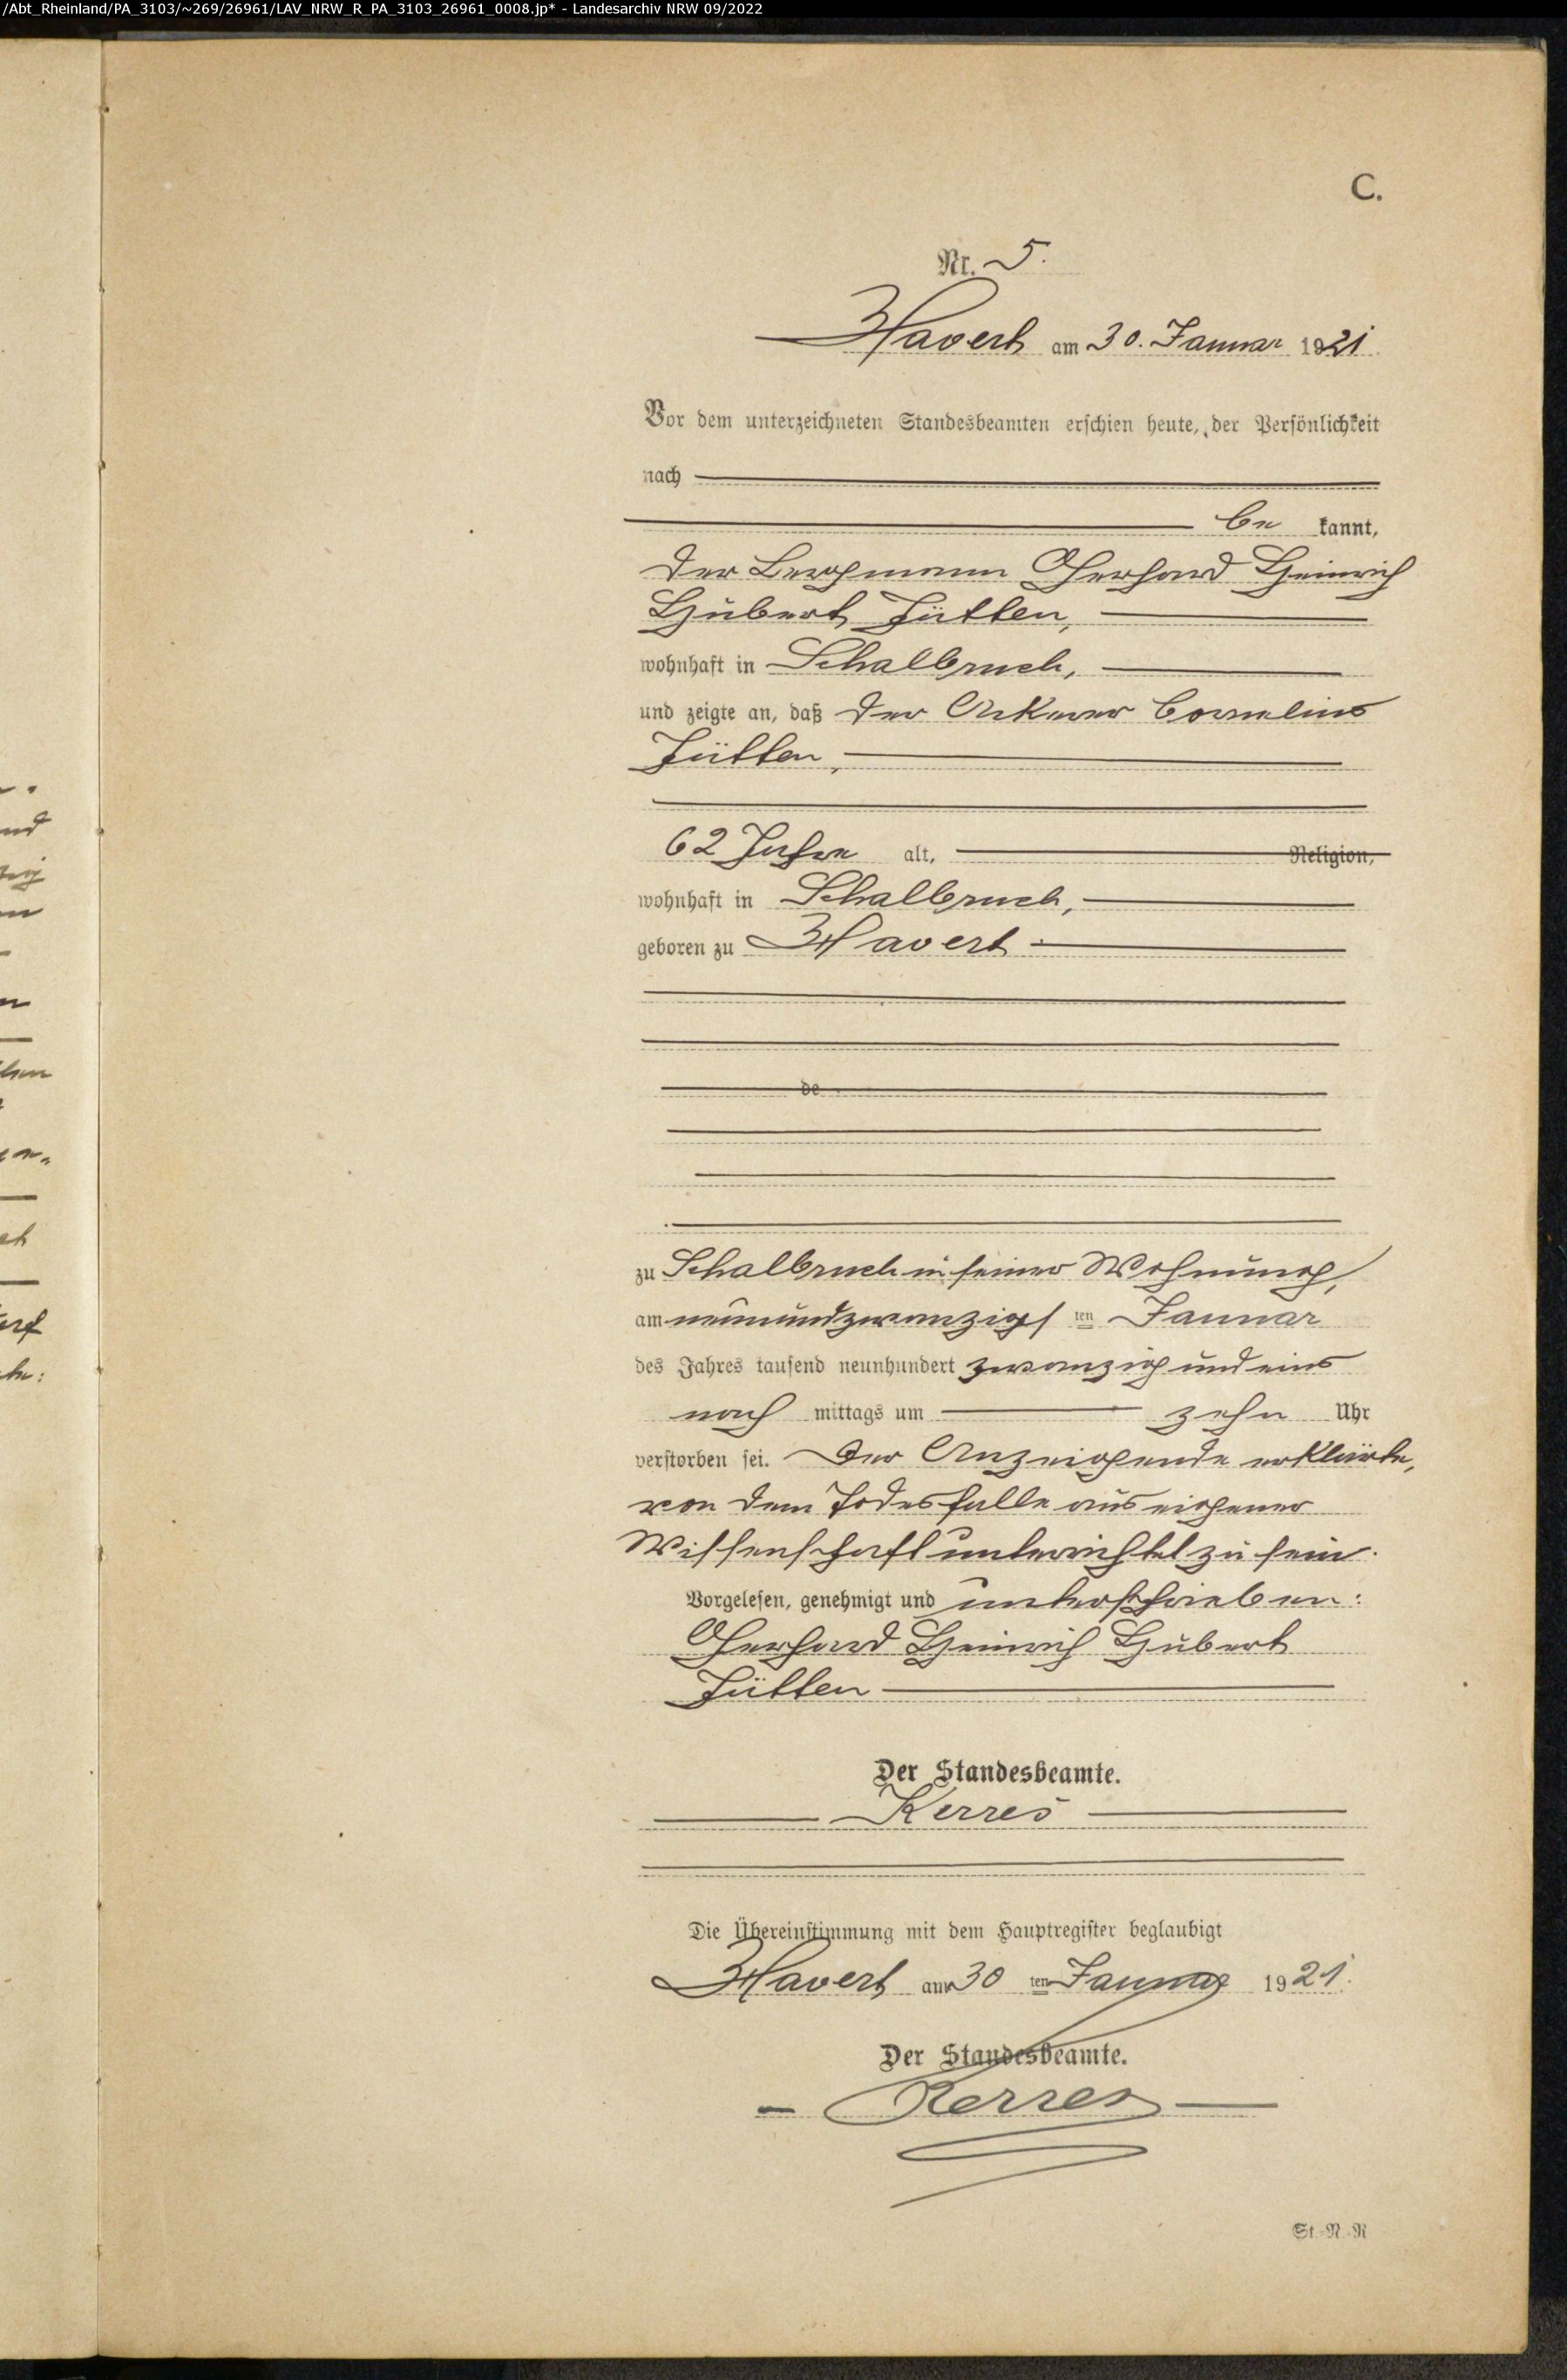 /Abt_Rheinland/PA_3103/~269/26961/LAV_NRW_R_PA_3103_26961_0008.jp* - Landesarchiv NRW 09/2022
C.
Nr. 5.
Havert am 30. Januar 1921.
Vor dem unterzeichneten Standesbeamten erschien heute, der Persönlichkeit
nach
be kannt,
der Bergmann Gerhard Heinrich
Hubert Jütten,
wohnhaft in Schalbruch,
und zeigte an, daß der Ackerer Cornelius
Jütten,
62 Jahre alt, Religion,
wohnhaft in Schalbruch,
geboren zu Havert
de
zu Schalbruch in seiner Wohnung,
am neunundzwanzigsten Januar
des Jahres tausend neunhundert zwanzig und eins
nach mittags um zehn Uhr
verstorben sei. Der Anzeigende erklärte,
von dem Todesfalle aus eigener
Wissenschaft unterrichtet zu sein.
Vorgelesen, genehmigt und unterschrieben:
Gerhard Heinrich Hubert
Jütten
Der Standesbeamte.
Kerres
Die Übereinstimmung mit dem Hauptregister beglaubigt
Havert am 30 ten Januar 1921.
Der Standesbeamte.
Kerres
St.-N.-R